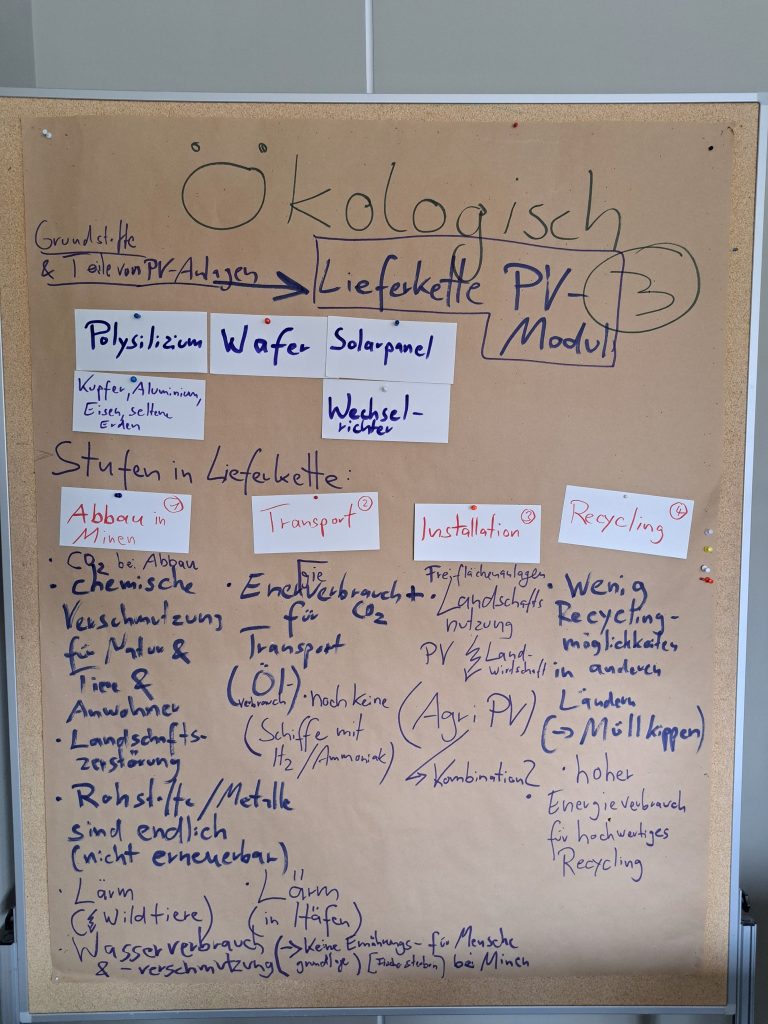 Ökologisch
3
Grundstoffe
& Teile von PV-Anlagen
Lieferkette PV-
Modul
Polysilizium
Wafer
Solarpanel
Kupfer, Aluminium,
Eisen, seltene
Erden
Wechsel-
richter
Stufen in Lieferkette:
Abbau in
Minen
1
· CO2 bei Abbau
· chemische
Verschmutzung
für Natur &
Tiere &
Anwohner
· Landschafts-
zerstörung
· Rohstoffe/Metalle
sind endlich
(nicht erneuerbar)
· Lärm
(↯ Wildtiere)
· Wasserverbrauch
& -verschmutzung
(→ Keine Ernährungs-
grundlage)
für Mensche
[Fische sterben] bei Minen
Transport
2
· Energieverbrauch + CO2
für
Transport
(Öl-
verbrauch)
· noch keine
(Schiffe mit
H2/Ammoniak)
· Lärm
(in Häfen)
Installation
3
Freiflächenanlagen
· Landschafts
nutzung
PV ↯ Land-
wirtschaft
(Agri PV)
↳ Kombination?
Recycling
4
· Wenig
Recycling-
möglichkeiten
in anderen
Ländern
(→ Müllkippen)
· hoher
Energieverbrauch
für hochwertiges
Recycling